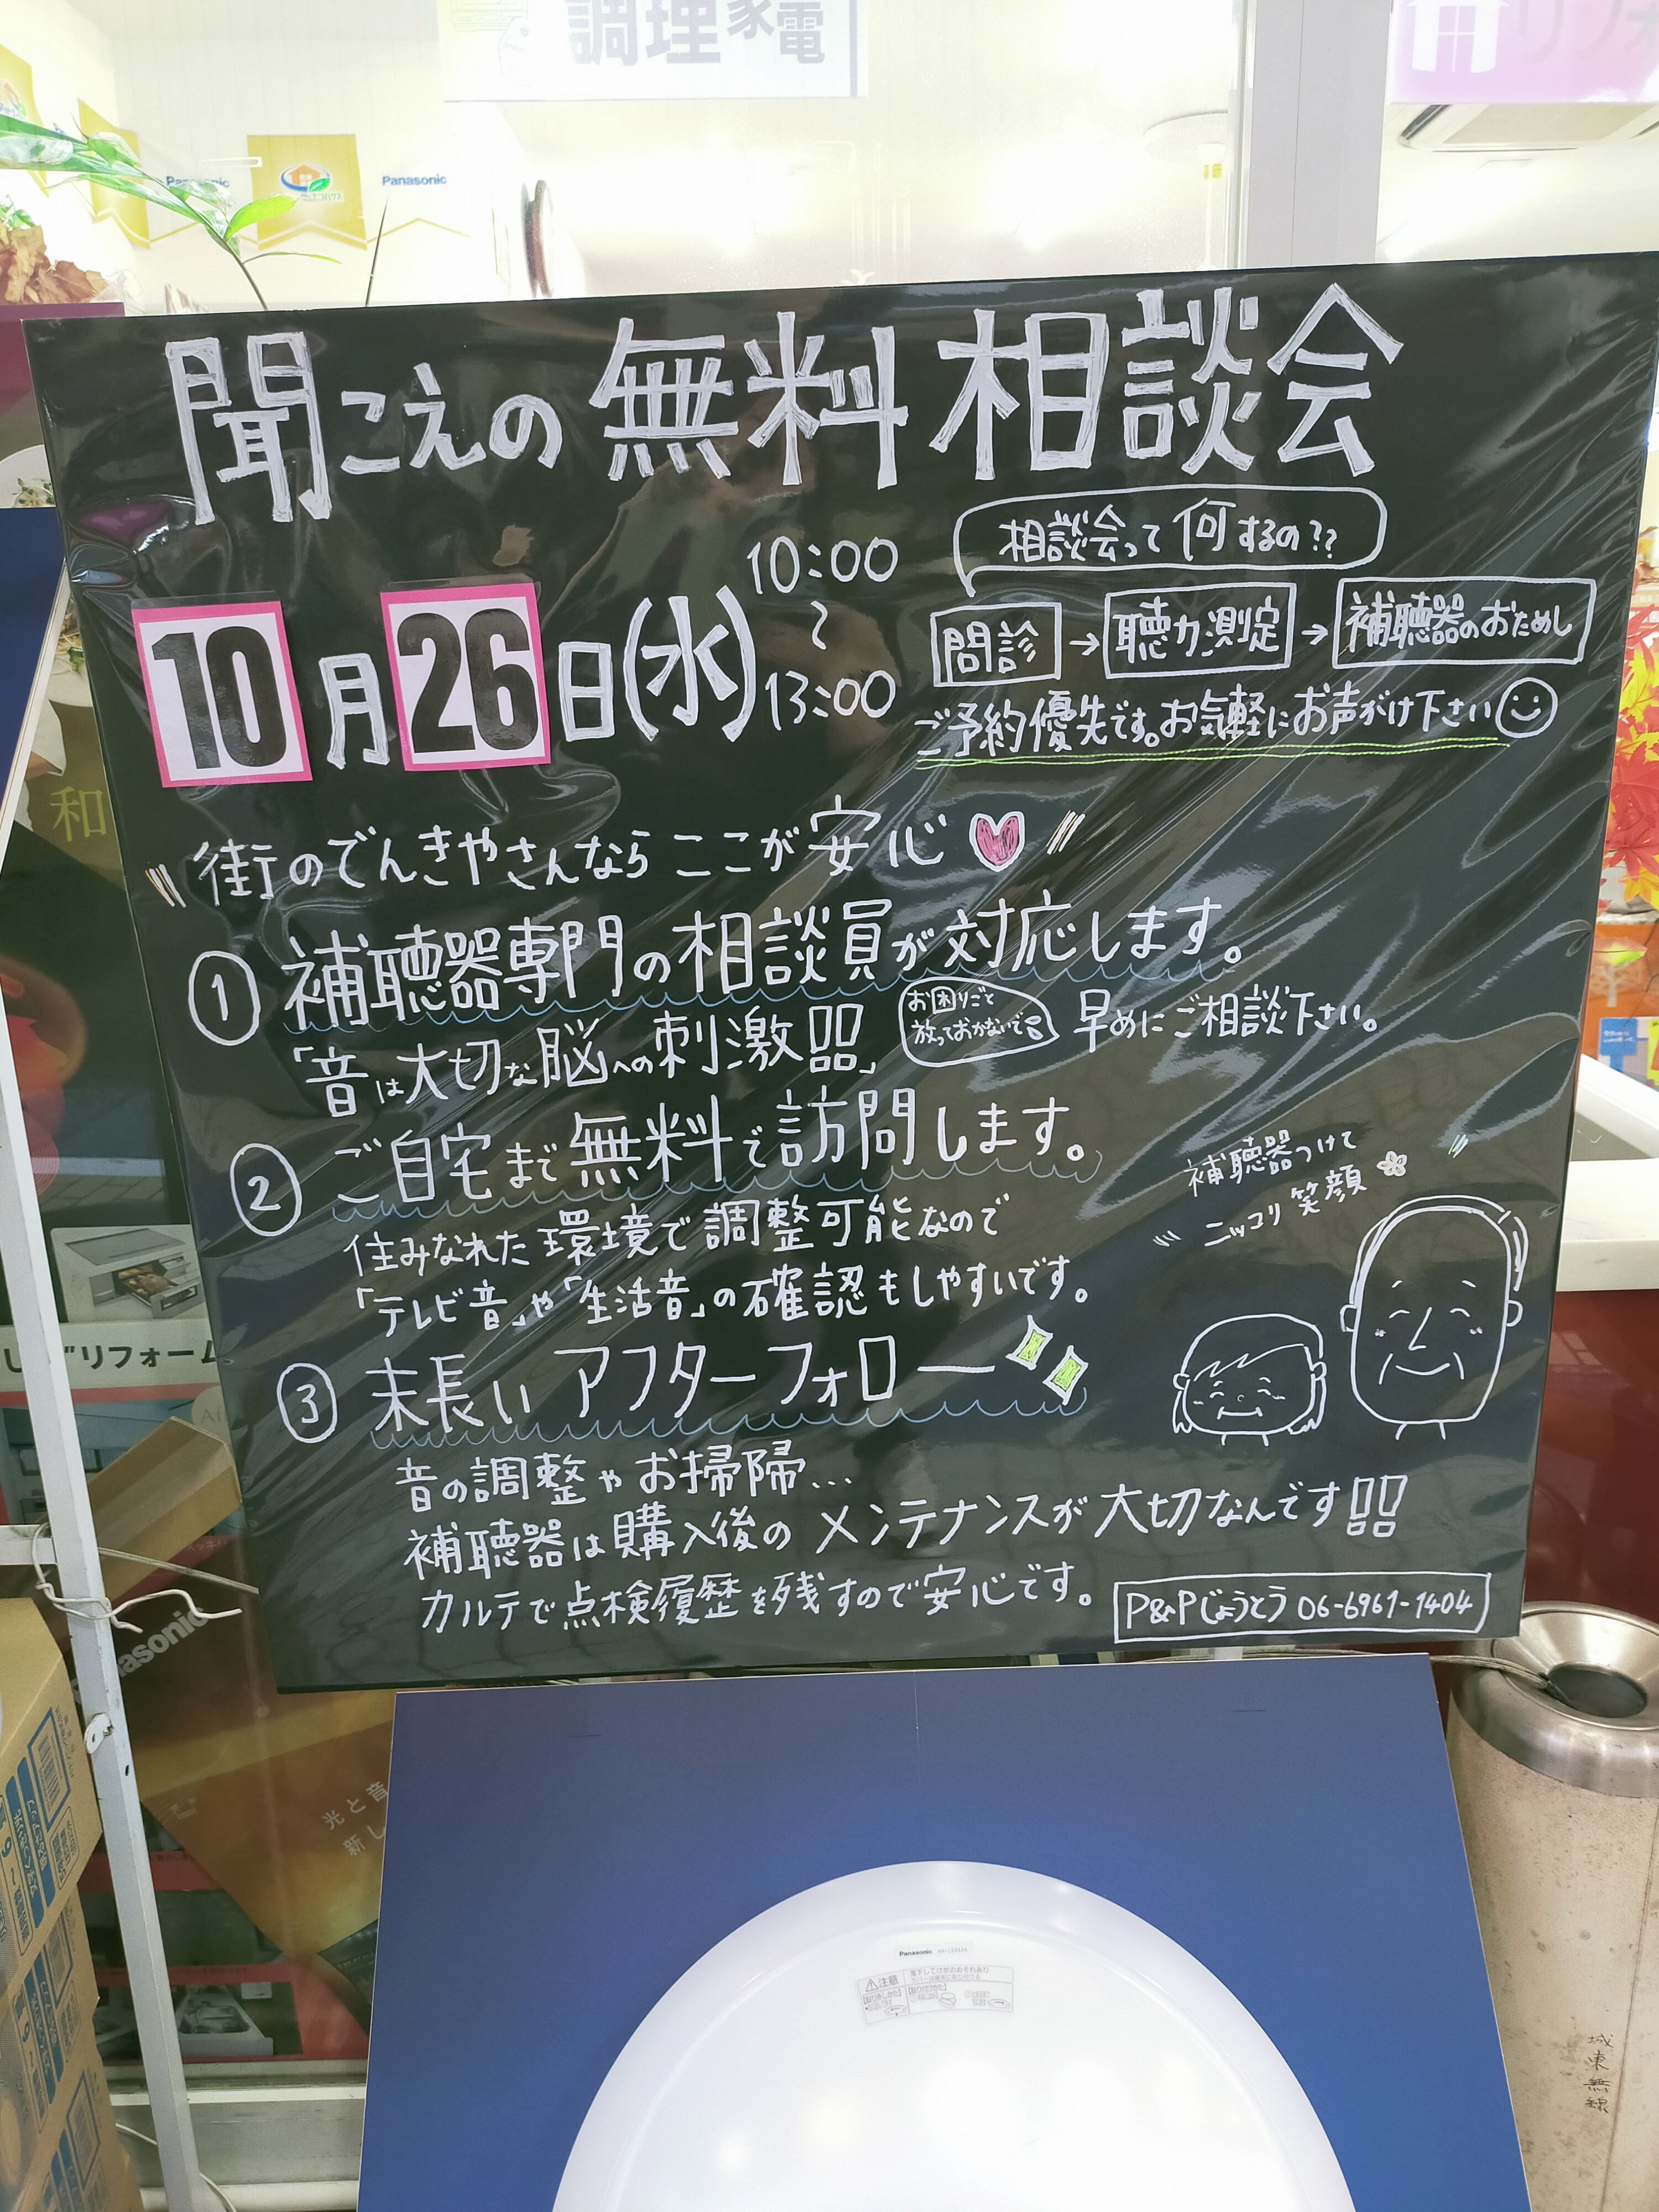 調理家電
リフォ
Panasonic
Panasonic
聞こえの無料相談会
10月26日(水)
10:00
〜
13:00
相談会って何するの??
問診→聴力測定→補聴器のおためし
ご予約優先です。お気軽にお声がけ下さい
街のでんきやさんなら ここが安心
① 補聴器専門の相談員が対応します。
「音は大切な脳への刺激!!」
お困りごと
放っておかないで
早めにご相談下さい。
② ご自宅まで無料で訪問します。
住みなれた環境で調整可能なので
「テレビ音」や「生活音」の確認もしやすいです。
補聴器つけて
ニッコリ笑顔
③ 末長いアフターフォロー
音の調整やお掃除...
補聴器は購入後のメンテナンスが大切なんです!!
カルテで点検履歴を残すので安心です。
P&Pじょうとう 06-6961-1404
和
リフォーム
Panasonic
光と音
新し
Panasonic
注意
城東無線